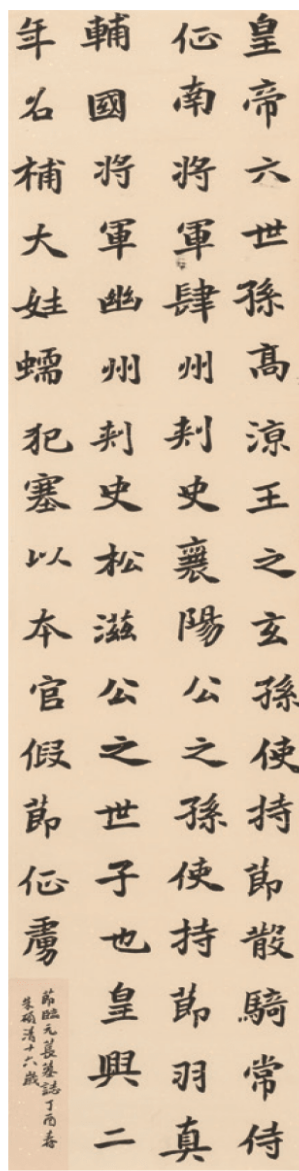 皇帝六世孫髙涼王之玄孫使持節散騎常侍
征南将軍肆州刾史襄陽公之孫使持節羽真
輔國将軍幽州刾史松滋公之世子也皇興二
年名補大姓蠕犯塞以夲官假節征虜
節臨元萇墓誌丁酉春
朱碩清十六歲